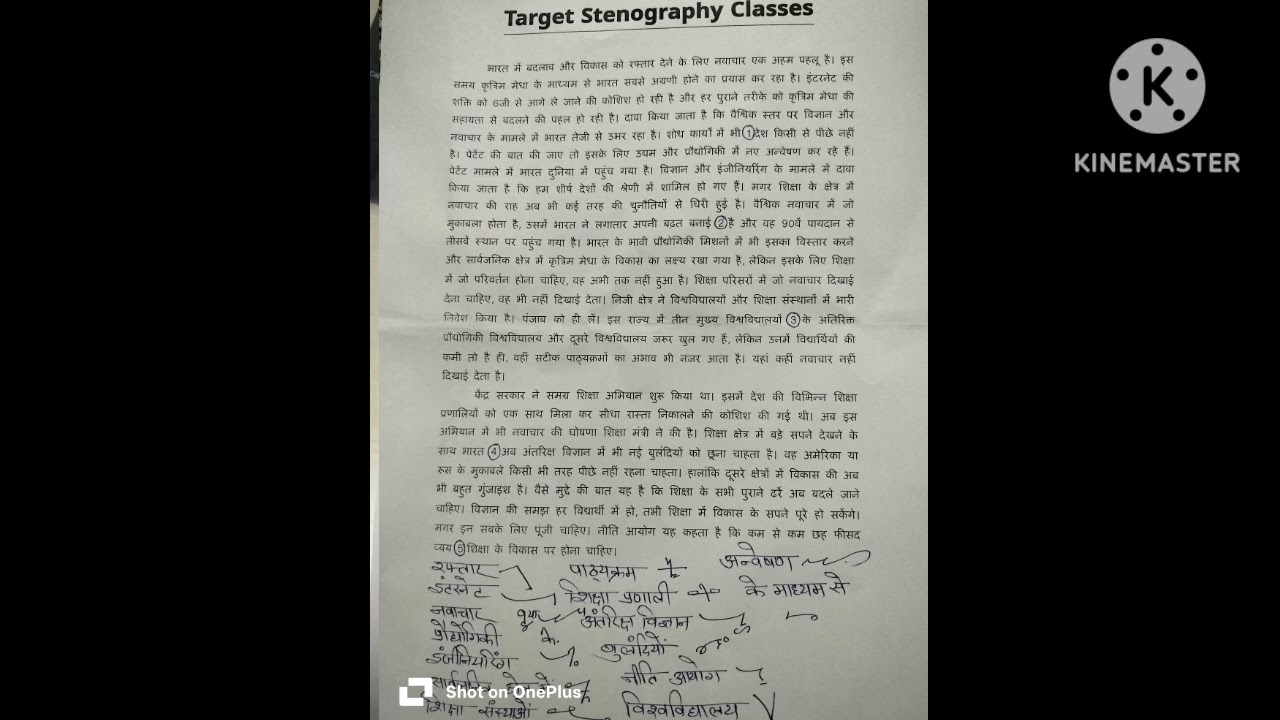 Target Stenography Classes
भारत में बदलाव और विकास को रफ्तार देने के लिए नवाचार एक अहम पहलू है। इस
समय कृत्रिम मेधा के माध्यम से भारत सबसे अग्रणी होने का प्रयास कर रहा है। इंटरनेट की
शक्ति को 6जी से आगे ले जाने की कोशिश हो रही है और हर पुराने तरीके को कृत्रिम मेधा की
सहायता से बदलने की पहल हो रही है। दावा किया जाता है कि वैश्विक स्तर पर विज्ञान और
नवाचार के मामले में भारत तेजी से उभर रहा है। शोध कार्यों में भी 1 देश किसी से पीछे नहीं
है। पेटेंट की बात की जाए तो इसके लिए उद्यम और प्रौद्योगिकी में नए अन्वेषण कर रहे हैं।
पेटेंट मामले में भारत दुनिया में पहुंच गया है। विज्ञान और इंजीनियरिंग के मामले में दावा
किया जाता है कि हम शीर्ष देशों की श्रेणी में शामिल हो गए हैं। मगर शिक्षा के क्षेत्र में
नवाचार की राह अब भी कई तरह की चुनौतियों से घिरी हुई है। वैश्विक नवाचार में जो
मुकाबला होता है, उसमें भारत ने लगातार अपनी बढ़त बनाई 2 है और वह 90वें पायदान से
तीसवें स्थान पर पहुंच गया है। भारत के भावी प्रौद्योगिकी मिशनों में भी इसका विस्तार करने
और सार्वजनिक क्षेत्र में कृत्रिम मेधा के विकास का लक्ष्य रखा गया है, लेकिन इसके लिए शिक्षा
में जो परिवर्तन होना चाहिए, वह अभी तक नहीं हुआ है। शिक्षा परिसरों में जो नवाचार दिखाई
देना चाहिए, वह भी नहीं दिखाई देता। निजी क्षेत्र ने विश्वविद्यालयों और शिक्षा संस्थानों में भारी
निवेश किया है। पंजाब को ही लें। इस राज्य में तीन मुख्य विश्वविद्यालयों 3 के अतिरिक्त
प्रौद्योगिकी विश्वविद्यालय और दूसरे विश्वविद्यालय जरूर खुल गए हैं, लेकिन उनमें विद्यार्थियों की
कमी तो है ही, वहीं सटीक पाठ्यक्रमों का अभाव भी नजर आता है। यहां कहीं नवाचार नहीं
दिखाई देता है।
केंद्र सरकार ने समग्र शिक्षा अभियान शुरू किया था। इसमें देश की विभिन्न शिक्षा
प्रणालियों को एक साथ मिला कर सीधा रास्ता निकालने की कोशिश की गई थी। अब इस
अभियान में भी नवाचार की घोषणा शिक्षा मंत्री ने की है। शिक्षा क्षेत्र में बड़े सपने देखने के
साथ भारत 4 अब अंतरिक्ष विज्ञान में भी नई बुलंदियों को छूना चाहता है। वह अमेरिका या
रूस के मुकाबले किसी भी तरह पीछे नहीं रहना चाहता। हालांकि दूसरे क्षेत्रों में विकास की अब
भी बहुत गुंजाइश है। वैसे मुद्दे की बात यह है कि शिक्षा के सभी पुराने ढर्रे अब बदले जाने
चाहिए। विज्ञान की समझ हर विद्यार्थी में हो, तभी शिक्षा में विकास के सपने पूरे हो सकेंगे।
मगर इन सबके लिए पूंजी चाहिए। नीति आयोग यह कहता है कि कम से कम छह फीसद
व्यय 5 शिक्षा के विकास पर होना चाहिए।
रफ्तार पाठ्यक्रम अन्वेषण
इंटरनेट शिक्षा प्रणाली के माध्यम से
नवाचार अंतरिक्ष विज्ञान
प्रौद्योगिकी बुलंदियों
इंजीनियरिंग
नीति आयोग
शिक्षा संस्थाओं विश्वविद्यालय
Shot on OnePlus
KINEMASTER